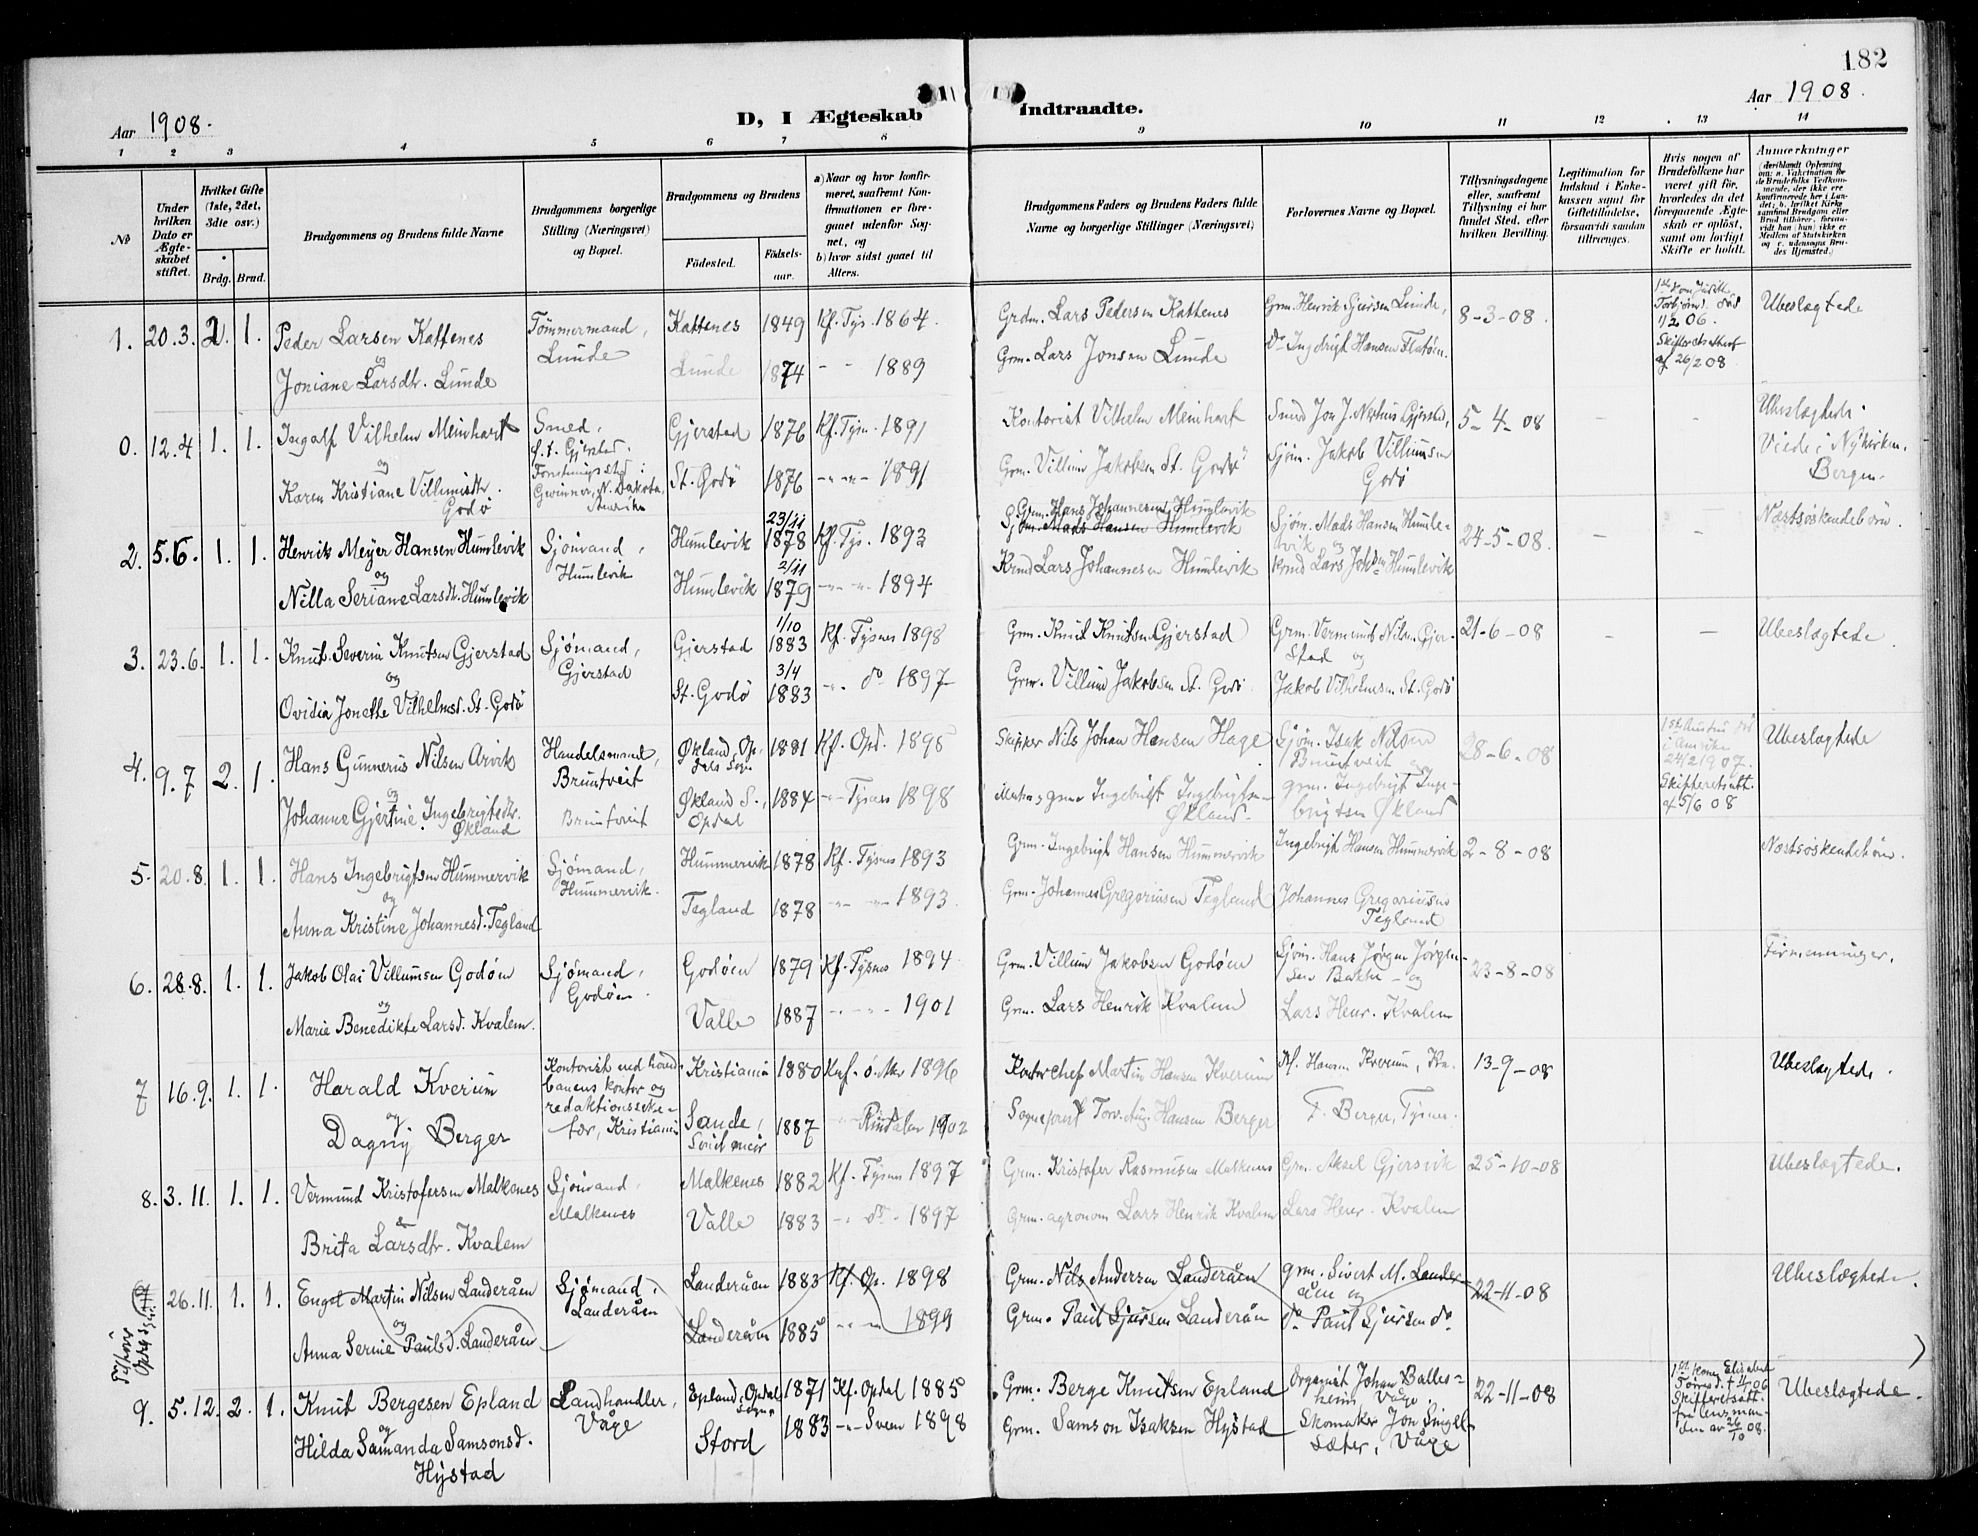 182
Aar 1908.
D, I Ægteskab Indtraadte.
Aar 1908.
1 2 3 4 5 6 7 8 9 10 11 12 13 14
No
Under hvilken Dato er Ægteskabet stiftet.
Hvilket Gifte (1ste, 2det, 3die osv.)
Brdg. Brud.
Brudgommens og Brudens fulde Navne
Brudgommens borgerlige Stilling (Næringsvei) og Bopæl.
Brudgommens og Brudens
Fødested. Fødselsaar.
a) Naar og hvor konfirmeret, saafremt Konfirmationen er foregaaet udenfor Sognet, og
b) hvor sidst gaaet til Alters.
Brudgommens Faders og Brudens Faders fulde Navne og borgerlige Stillinger (Næringsvei)
Forlovernes Navne og Bopæl.
Tillysningsdagene eller, saafremt Tillysning ei har fundet Sted, efter hvilken Bevilling.
Legitimation for Indskud i Enkekassen samt for Giftetilladelse, forsaavidt saadan tiltrænges.
Hvis nogen af Brudefolkene har været gift før, hvorledes da det foregaaende Ægteskab er opløst, samt om lovligt Skifte er holdt.
Anmerkninger
1. 20.3. 2. 1. Peder Larsen Kattenes
og
Joniane Larsdtr. Lunde
Tømmermand, Lunde
Kattenes 1849 Kf. Tys. 1864.
Lunde 1874 - - 1889
Grdm. Lars Pedersen Kattenes
Grm. Lars Jonsen Lunde
Grm. Henrik Sjursen Lunde,
Do Ingebrigt Hansen Flatøen.
8-3-08.
1/2 06.
af 26/2 08
Ubeslægtede
0. 12.4 1. 1. Ingolf Vilhelm Meinhart
og
Karen Kristiane Villumsdtr. Godø
Smed,
Gjerstad.
Gwinner, N. Dakota, Amerika
Gjerstad 1876 Kf. Tysn. 1891
St. Godø 1876 -"- -"- 1891
Kontorist Vilhelm Meinhart
Grm. Villum Jakobsen St. Godø
Smed Jon J. Gjerstad,
Sjøm. Jakob Villumsen Godø
5-4-08
-
-
Ubeslægtede.
Viede i Nykirken. Bergen.
2. 5.6. 1. 1. Henrik Meyer Hansen Humlevik
og
Nilla Seriane Larsdtr. Humlevik
Sjømand, Humlevik
Humlevik 23/11 1878 Kf. Tys. 1893
Humlevik 2/11 1879 -"- -"- 1894
Grm. Hans Johannesen Humlevik
Sjøm. Mads Hansen Humlevik
Krmd Lars Johannesen Humlevik
Sjøm. Mads Hansen Humlevik og
Krmd Lars Johsen Humlevik
24-5-08.
-
-
Næstsøskendebørn.
3. 23.6. 1. 1. Knut Severin Knutsen Gjerstad
og
Ovidia Jonette Vilhelmsd. St. Godø
Sjømand, Gjerstad
Gjerstad 1/10 1883 Kf. Tysnes 1898
St. Godø 3/4 1883 -"- do 1897
Grm. Knut Knutsen Gjerstad
Grm. Villum Jakobsen St. Godø
Grm. Vermund Nilsn. Gjerstad og
Jakob Vilhelmsen St. Godø
21-6-08
-
-
Ubeslægtede.
4. 9.7 2. 1. Hans Gunnerus Nilsen Arvik
og
Johanne Gjertine Ingebrigtsdtr. Økland
Handelsmand, Bruntveit
Bruntveit
Økland, Opdals Sogn 1881 Kf. Opd. 1895
Økland S., Opdal 1884 -"- Tysnes 1898
Skipper Nils Johan Hansen Hage
grm Ingebrigt Ingebrigtsen Økland
Sjøm. Isak Nilsen Bruntveit og
grm. Ingebrigt Ingebrigtsen Økland
28-6-08
24/2 1907.
Skifteretsatt. af 5/6 08
Ubeslægtede
5. 20.8. 1. 1. Hans Ingebrigtsen Hummervik
og
Anna Kristine Johannesd. Tegland
Sjømand, Hummervik.
Hummervik 1878 Kf. Tysnes 1893
Tegland 1878 -"- -"- 1893.
Grm. Ingebrigt Hansen Hummervik
Grm. Johannes Gregoriusen Tegland
Ingebrigt Hansen Hummervik
Johannes Gregoriusen Tegland
2-8-08
Næstsøskendebørn.
6. 28.8. 1. 1. Jakob Olai Villumsen Godøen
og
Marie Benedikte Larsd. Kvalem.
Sjømand, Godøen.
Godøen 1879 Kf. Tysnes 1894
Valle 1887 -"- -"- 1901
Grm. Villum Jakobsen Godøen
Grm. Lars Henrik Kvalem
Sjøm. Hans Jørgen Jørgensen Bakke - og
Lars Henr. Kvalem
23-8-08
Firmenninger.
7 16.9. 1. 1. Harald Kverum
og
Dagny Berger
Kontorist ved hovedbanens kontor og redaktionssekretær, Kristiania
Kristiania 1880 1896
Sande, Søndmør 1887 -"- Rindalen 1902
Kontorchef Martin Hansen Kverum
Sogneprest Torv. Aug. Hansen Berger
M. Hansen Kverum, Kra.
T. Berger, Tysnes.
13-9-08
Ubeslægtede.
8. 3.11. 1. 1. Vermund Kristofersen Malkenes
&
Brita Larsdtr. Kvalem
Sjømand, Malkenes
Malkenes 1882 Kf. Tysnes 1897
Valle 1883 -"- do - 1897
Grm. Kristofer Rasmusen Malkenes
Grm. agronom Lars Henrik Kvalem
Grm. Aksel Gjersvik
Lars Henr. Kvalem
25-10-08
Ubeslægtede.
26.11. 1. 1. Engel Martin Nilsen Landeråen
og
Anna Serine Paulsd. Landeråen
Sjømand, Landeråen
Landeråen 1883 Kf. Op. 1898
Landeråen 1885 -"- -"- 1899
Grm. Nils Andersen Landeråen
Grm. Paul Sjursen Landeråen
grm. Sivert M. Landeråen og
do Paul Sjursen do
22-11-08
Ubeslægtede.
9. 5.12. 2. 1. Knut Bergesen Epland
og
Hilda Samanda Samsonsd. Hystad
Landhandler, Våge
Epland, Opdal Sogn 1871 Kf. Opdal 1885
Stord 1883 -"- Sveen 1898
Grm. Berge Knutsen Epland
Grm. Samson Isaksen Hystad
Organist Johan Ballesheim Våge,
Skomaker Jon Singelsæter, Våge
22-11-08
Elisabet
Skifteretsatt.
26/10 08.
Ubeslægtede.